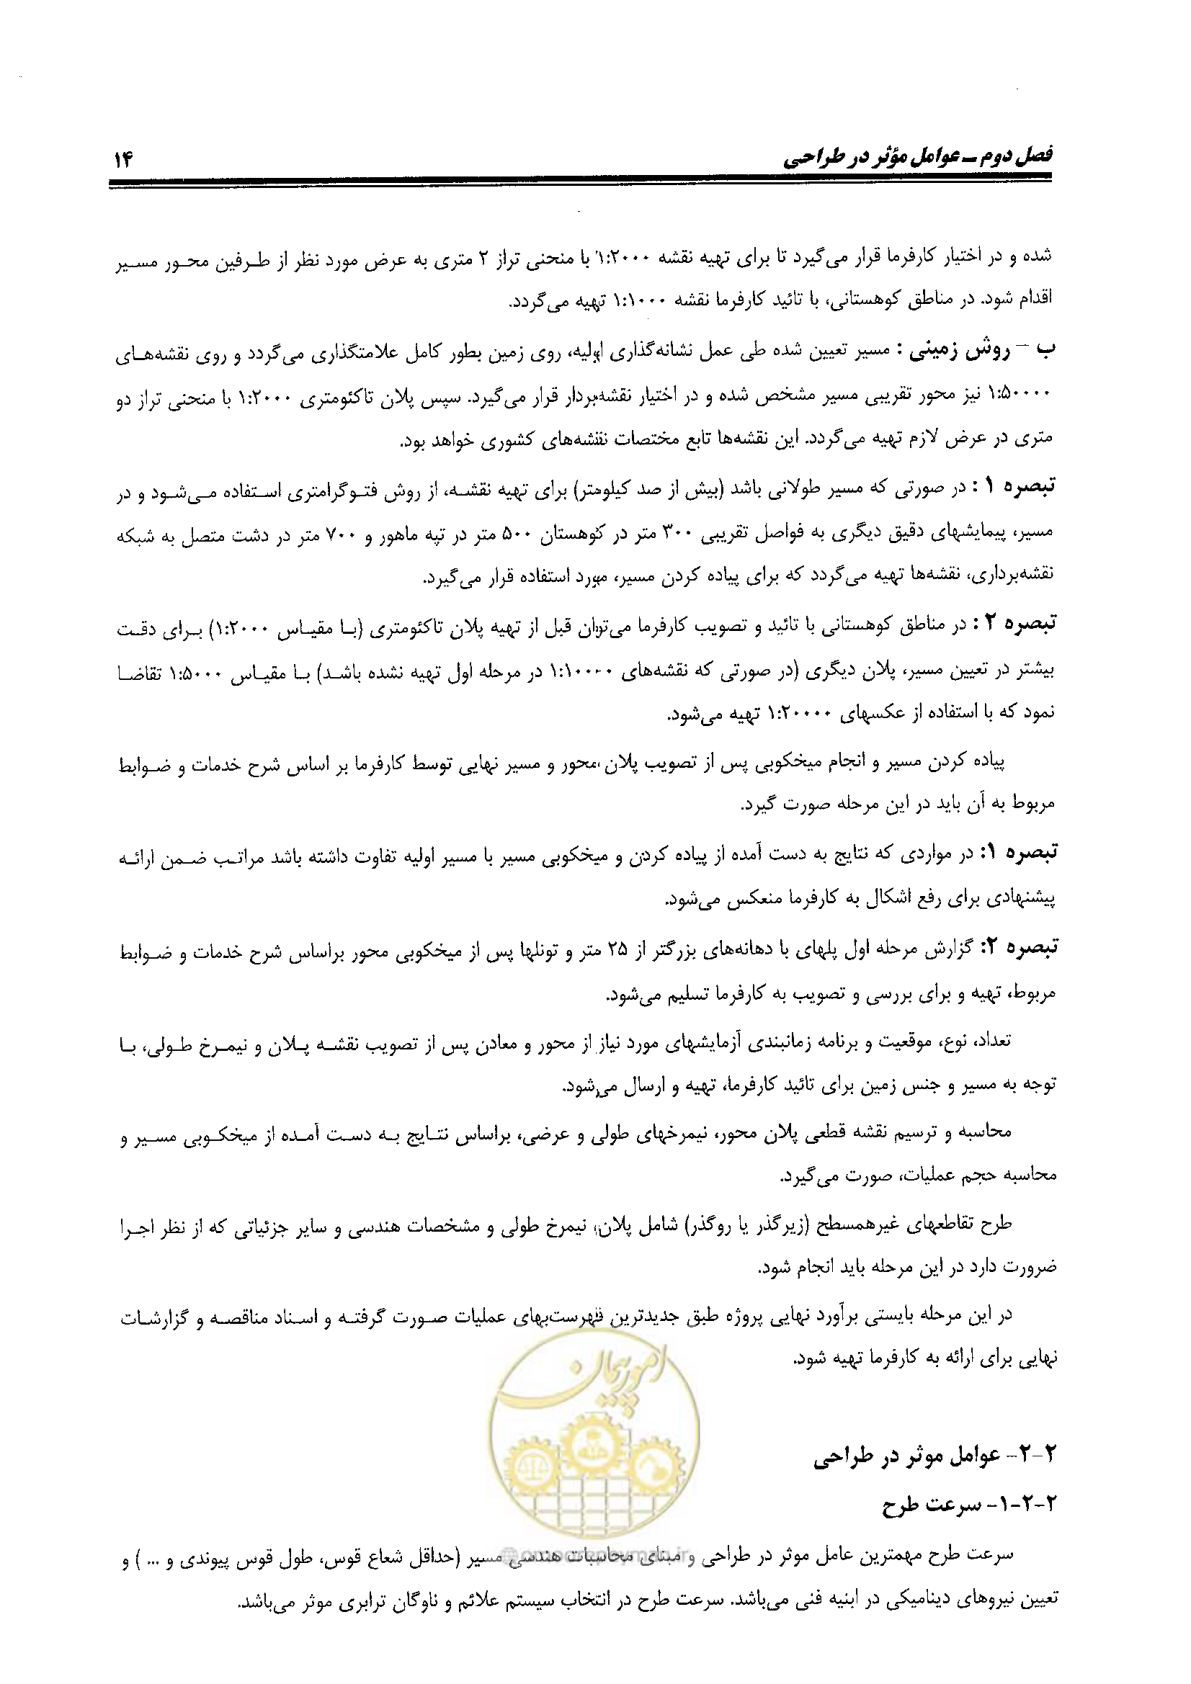 فصل دوم ــ عوامل مؤثر در طراحی
۱۴
شده و در اختیار کارفرما قرار می‌گیرد تا برای تهیه نقشه ۱:۲۰۰۰ با منحنی تراز ۲ متری به عرض مورد نظر از طرفین محور مسیر
اقدام شود. در مناطق کوهستانی، با تائید کارفرما نقشه ۱:۱۰۰۰ تهیه می‌گردد.
ب – روش زمینی : مسیر تعیین شده طی عمل نشانه‌گذاری اولیه، روی زمین بطور کامل علامتگذاری می‌گردد و روی نقشه‌های
۱:۵۰۰۰۰ نیز محور تقریبی مسیر مشخص شده و در اختیار نقشه‌بردار قرار می‌گیرد. سپس پلان تاکئومتری ۱:۲۰۰۰ با منحنی تراز دو
متری در عرض لازم تهیه می‌گردد. این نقشه‌ها تابع مختصات نقشه‌های کشوری خواهد بود.
تبصره ۱ : در صورتی که مسیر طولانی باشد (بیش از صد کیلومتر) برای تهیه نقشه، از روش فتوگرامتری استفاده می‌شود و در
مسیر، پیمایشهای دقیق دیگری به فواصل تقریبی ۳۰۰ متر در کوهستان ۵۰۰ متر در تپه ماهور و ۷۰۰ متر در دشت متصل به شبکه
نقشه‌برداری، نقشه‌ها تهیه می‌گردد که برای پیاده کردن مسیر، مورد استفاده قرار می‌گیرد.
تبصره ۲ : در مناطق کوهستانی با تائید و تصویب کارفرما می‌توان قبل از تهیه پلان تاکئومتری (با مقیاس ۱:۲۰۰۰) برای دقت
بیشتر در تعیین مسیر، پلان دیگری (در صورتی که نقشه‌های ۱:۱۰۰۰۰ در مرحله اول تهیه نشده باشد) با مقیاس ۱:۵۰۰۰ تقاضا
نمود که با استفاده از عکسهای ۱:۲۰۰۰۰ تهیه می‌شود.
پیاده کردن مسیر و انجام میخکوبی پس از تصویب پلان محور و مسیر نهایی توسط کارفرما بر اساس شرح خدمات و ضوابط
مربوط به آن باید در این مرحله صورت گیرد.
تبصره ۱: در مواردی که نتایج به دست آمده از پیاده کردن و میخکوبی مسیر با مسیر اولیه تفاوت داشته باشد مراتب ضمن ارائه
پیشنهادی برای رفع اشکال به کارفرما منعکس می‌شود.
تبصره ۲: گزارش مرحله اول پلهای با دهانه‌های بزرگتر از ۲۵ متر و تونلها پس از میخکوبی محور براساس شرح خدمات و ضوابط
مربوط، تهیه و برای بررسی و تصویب به کارفرما تسلیم می‌شود.
تعداد، نوع، موقعیت و برنامه زمانبندی آزمایشهای مورد نیاز از محور و معادن پس از تصویب نقشه پلان و نیمرخ طولی، با
توجه به مسیر و جنس زمین برای تائید کارفرما، تهیه و ارسال می‌شود.
محاسبه و ترسیم نقشه قطعی پلان محور، نیمرخهای طولی و عرضی، براساس نتایج به دست آمده از میخکوبی مسیر و
محاسبه حجم عملیات، صورت می‌گیرد.
طرح تقاطعهای غیرهمسطح (زیرگذر یا روگذر) شامل پلان، نیمرخ طولی و مشخصات هندسی و سایر جزئیاتی که از نظر اجرا
ضرورت دارد در این مرحله باید انجام شود.
در این مرحله بایستی برآورد نهایی پروژه طبق جدیدترین فهرست‌بهای عملیات صورت گرفته و اسناد مناقصه و گزارشات
نهایی برای ارائه به کارفرما تهیه شود.
امور پیمان
۲-۲- عوامل موثر در طراحی
۲-۲-۱- سرعت طرح
سرعت طرح مهمترین عامل موثر در طراحی و مبنای محاسبات هندسی مسیر (حداقل شعاع قوس، طول قوس پیوندی و ... ) و
@omoorepeyman.ir
تعیین نیروهای دینامیکی در ابنیه فنی می‌باشد. سرعت طرح در انتخاب سیستم علائم و ناوگان ترابری موثر می‌باشد.